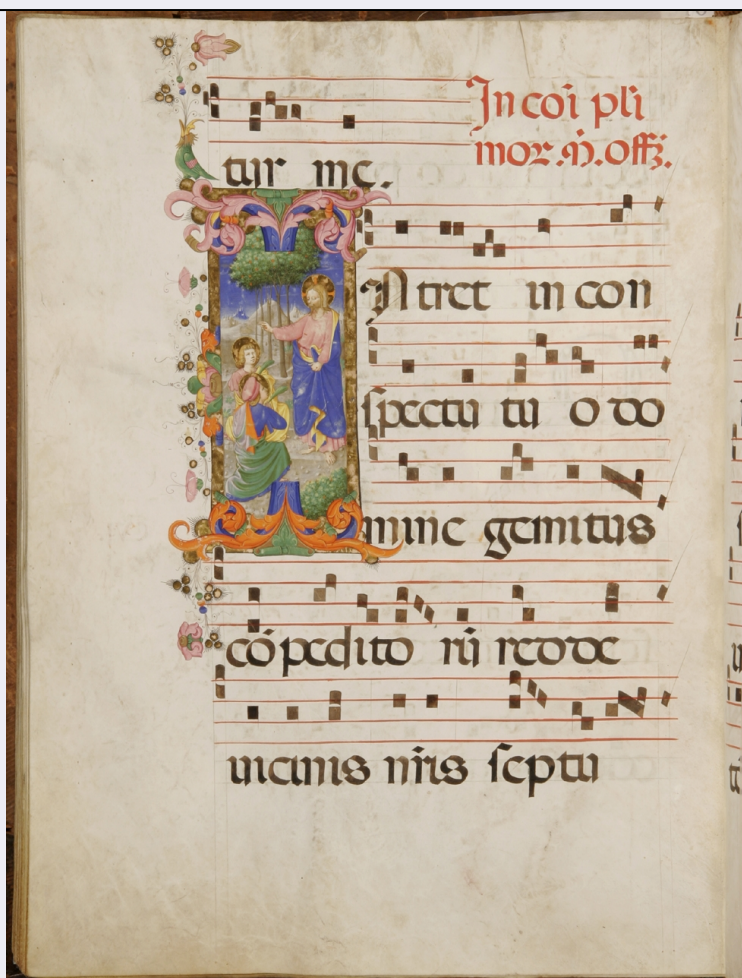 In coi pli
mor. m̃. offꝫ.
tur me.
INtret in con
spectu tu o do
mine gemitus
cõpedito rũ redde
uicinis nr̃is septu